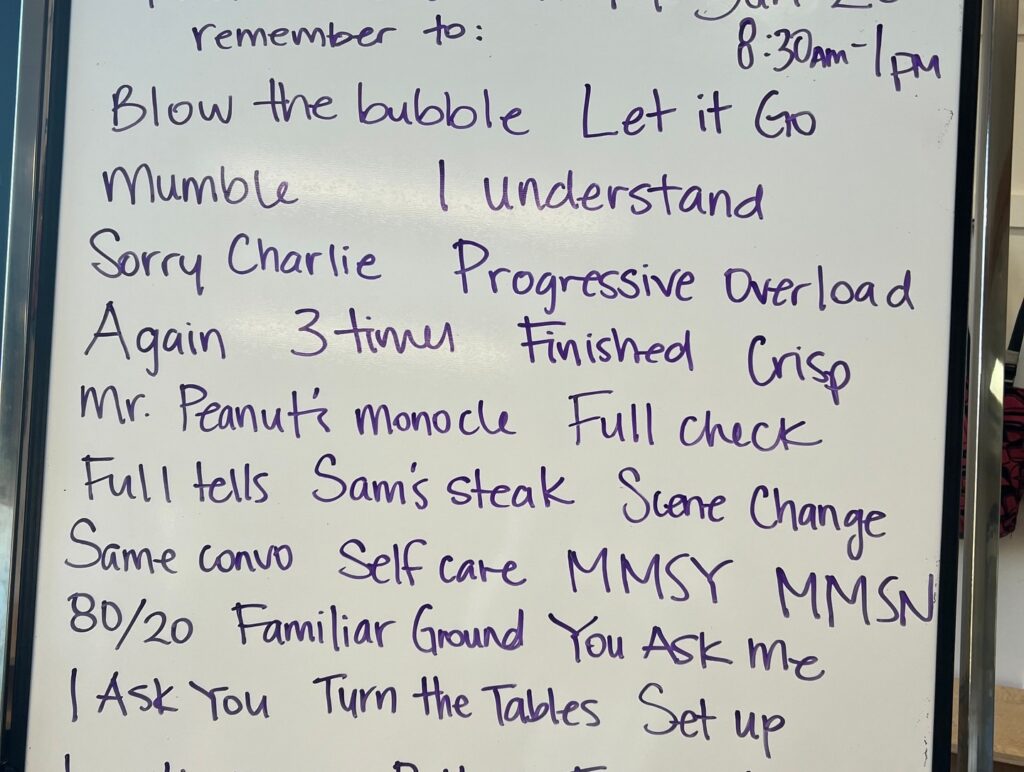 remember to:
8:30AM-1PM
Blow the bubble Let it Go
Mumble I understand
Sorry Charlie Progressive Overload
Again 3 times Finished Crisp
Mr. Peanut's monocle Full check
Full tells Sam's steak Scene Change
Same convo Self care MMSY MMSN
80/20 Familiar Ground You Ask Me
I Ask You Turn the Tables Set up